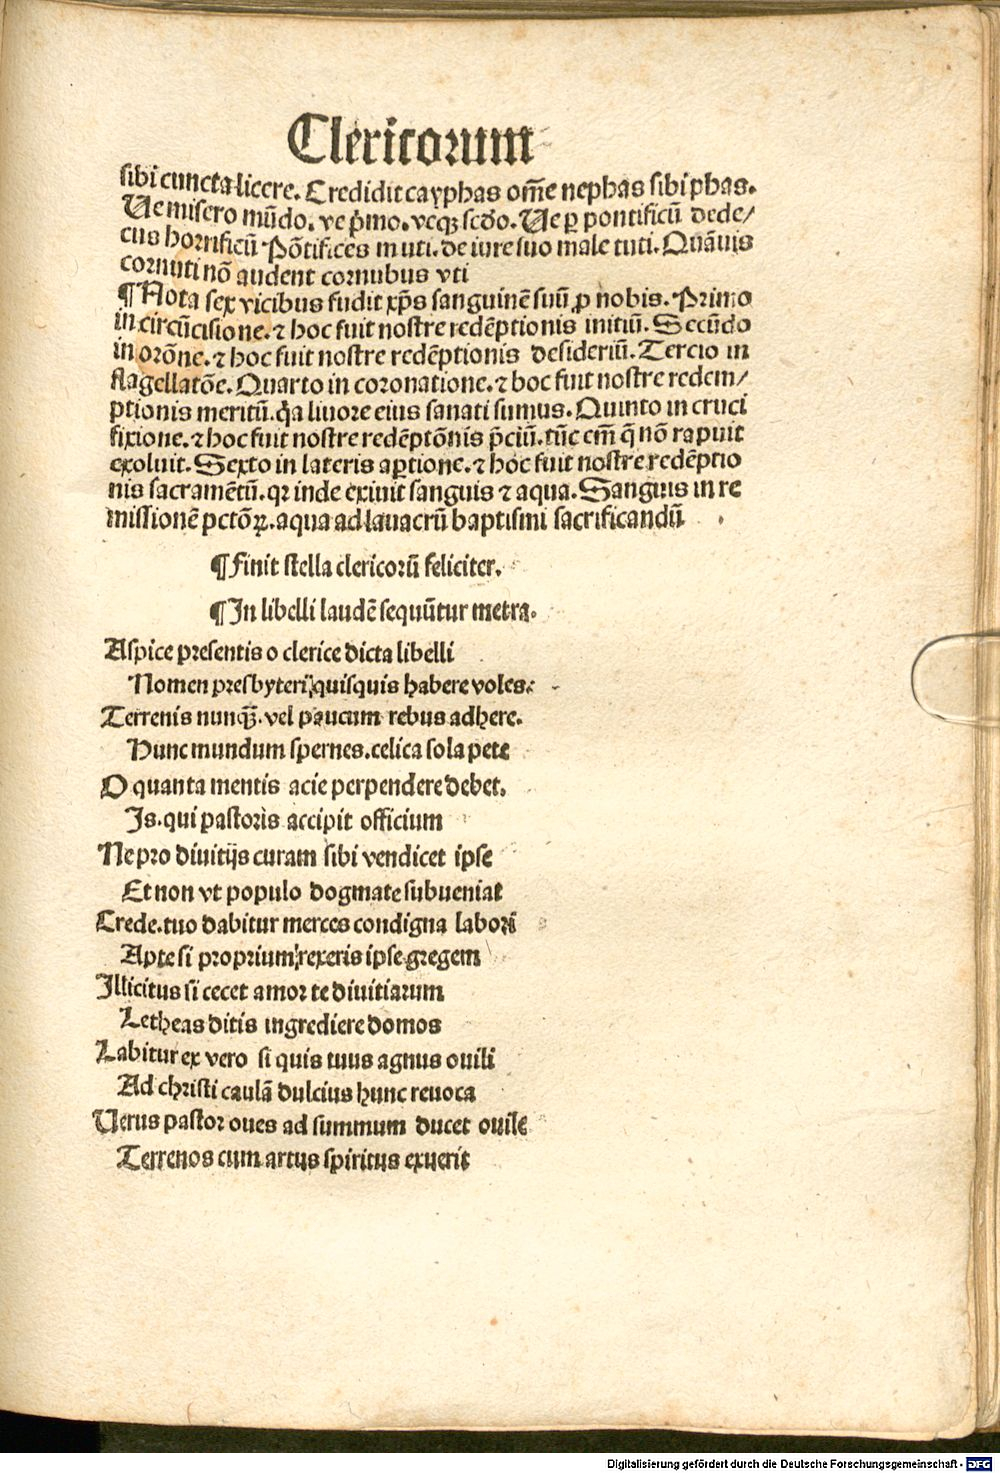 Clericorum
sibi cuncta licere. Credidit cayphas om̄e nephas sibi phas.
Ue misero mūdo. ve p̄mo. veqꝫ scd̄o. Ue ꝑ pontificū dede/
cus horrificū Pōtifices muti. de iure suo male tuti. Quāuis
cornuti nō audent cornubus vti
¶ Nota sex vicibus fudit xp̄s sanguinē suū ꝓ nobis. Primo
in circūcisione. ⁊ hoc fuit nostre redēptionis initiū. Secūdo
in orōne. ⁊ hoc fuit nostre redēptionis desideriū. Tercio in
flagellatōe. Quarto in coronatione. ⁊ hoc fuit nostre redem/
ptionis meritū. q̄a liuore eius sanati sumus. Quinto in cruci
fixione. ⁊ hoc fuit nostre redēptōnis p̄ciū. tūc em̄ q̄ nō rapuit
exoluit. Sexto in lateris aꝑtione. ⁊ hoc fuit nostre redēptio
nis sacramētū. qꝛ inde exiuit sanguis ⁊ aqua. Sanguis in re
missionē pctōꝝ. aqua ad lauacrū baptismi sacrificandū.
¶ Finit stella clericorū feliciter.
¶ In libelli laudē sequūtur metra.
Aspice presentis o clerice dicta libelli
Nomen presbyterij quisquis habere voles:
Terrenis nunqꝫ̄. vel paucum rebus adhere.
Hunc mundum spernes. celica sola pete
O quanta mentis acie perpendere debet.
Is. qui pastoris accipit officium
Ne pro diuitijs curam sibi vendicet ipse
Et non vt populo dogmate subueniat
Crede. tuo dabitur merces condigna labori
Apte si proprium rexeris ipse gregem
Illicitus si cecet amor te diuitiarum
Letheas ditis ingrediere domos
Labitur ex vero si quis tuus agnus ouili
Ad christi caulā dulcius hunc reuoca
Uerus pastor oues ad summum ducet ouile
Terrenos cum artus spiritus exuerit
Digitalisierung gefördert durch die Deutsche Forschungsgemeinschaft - DFG